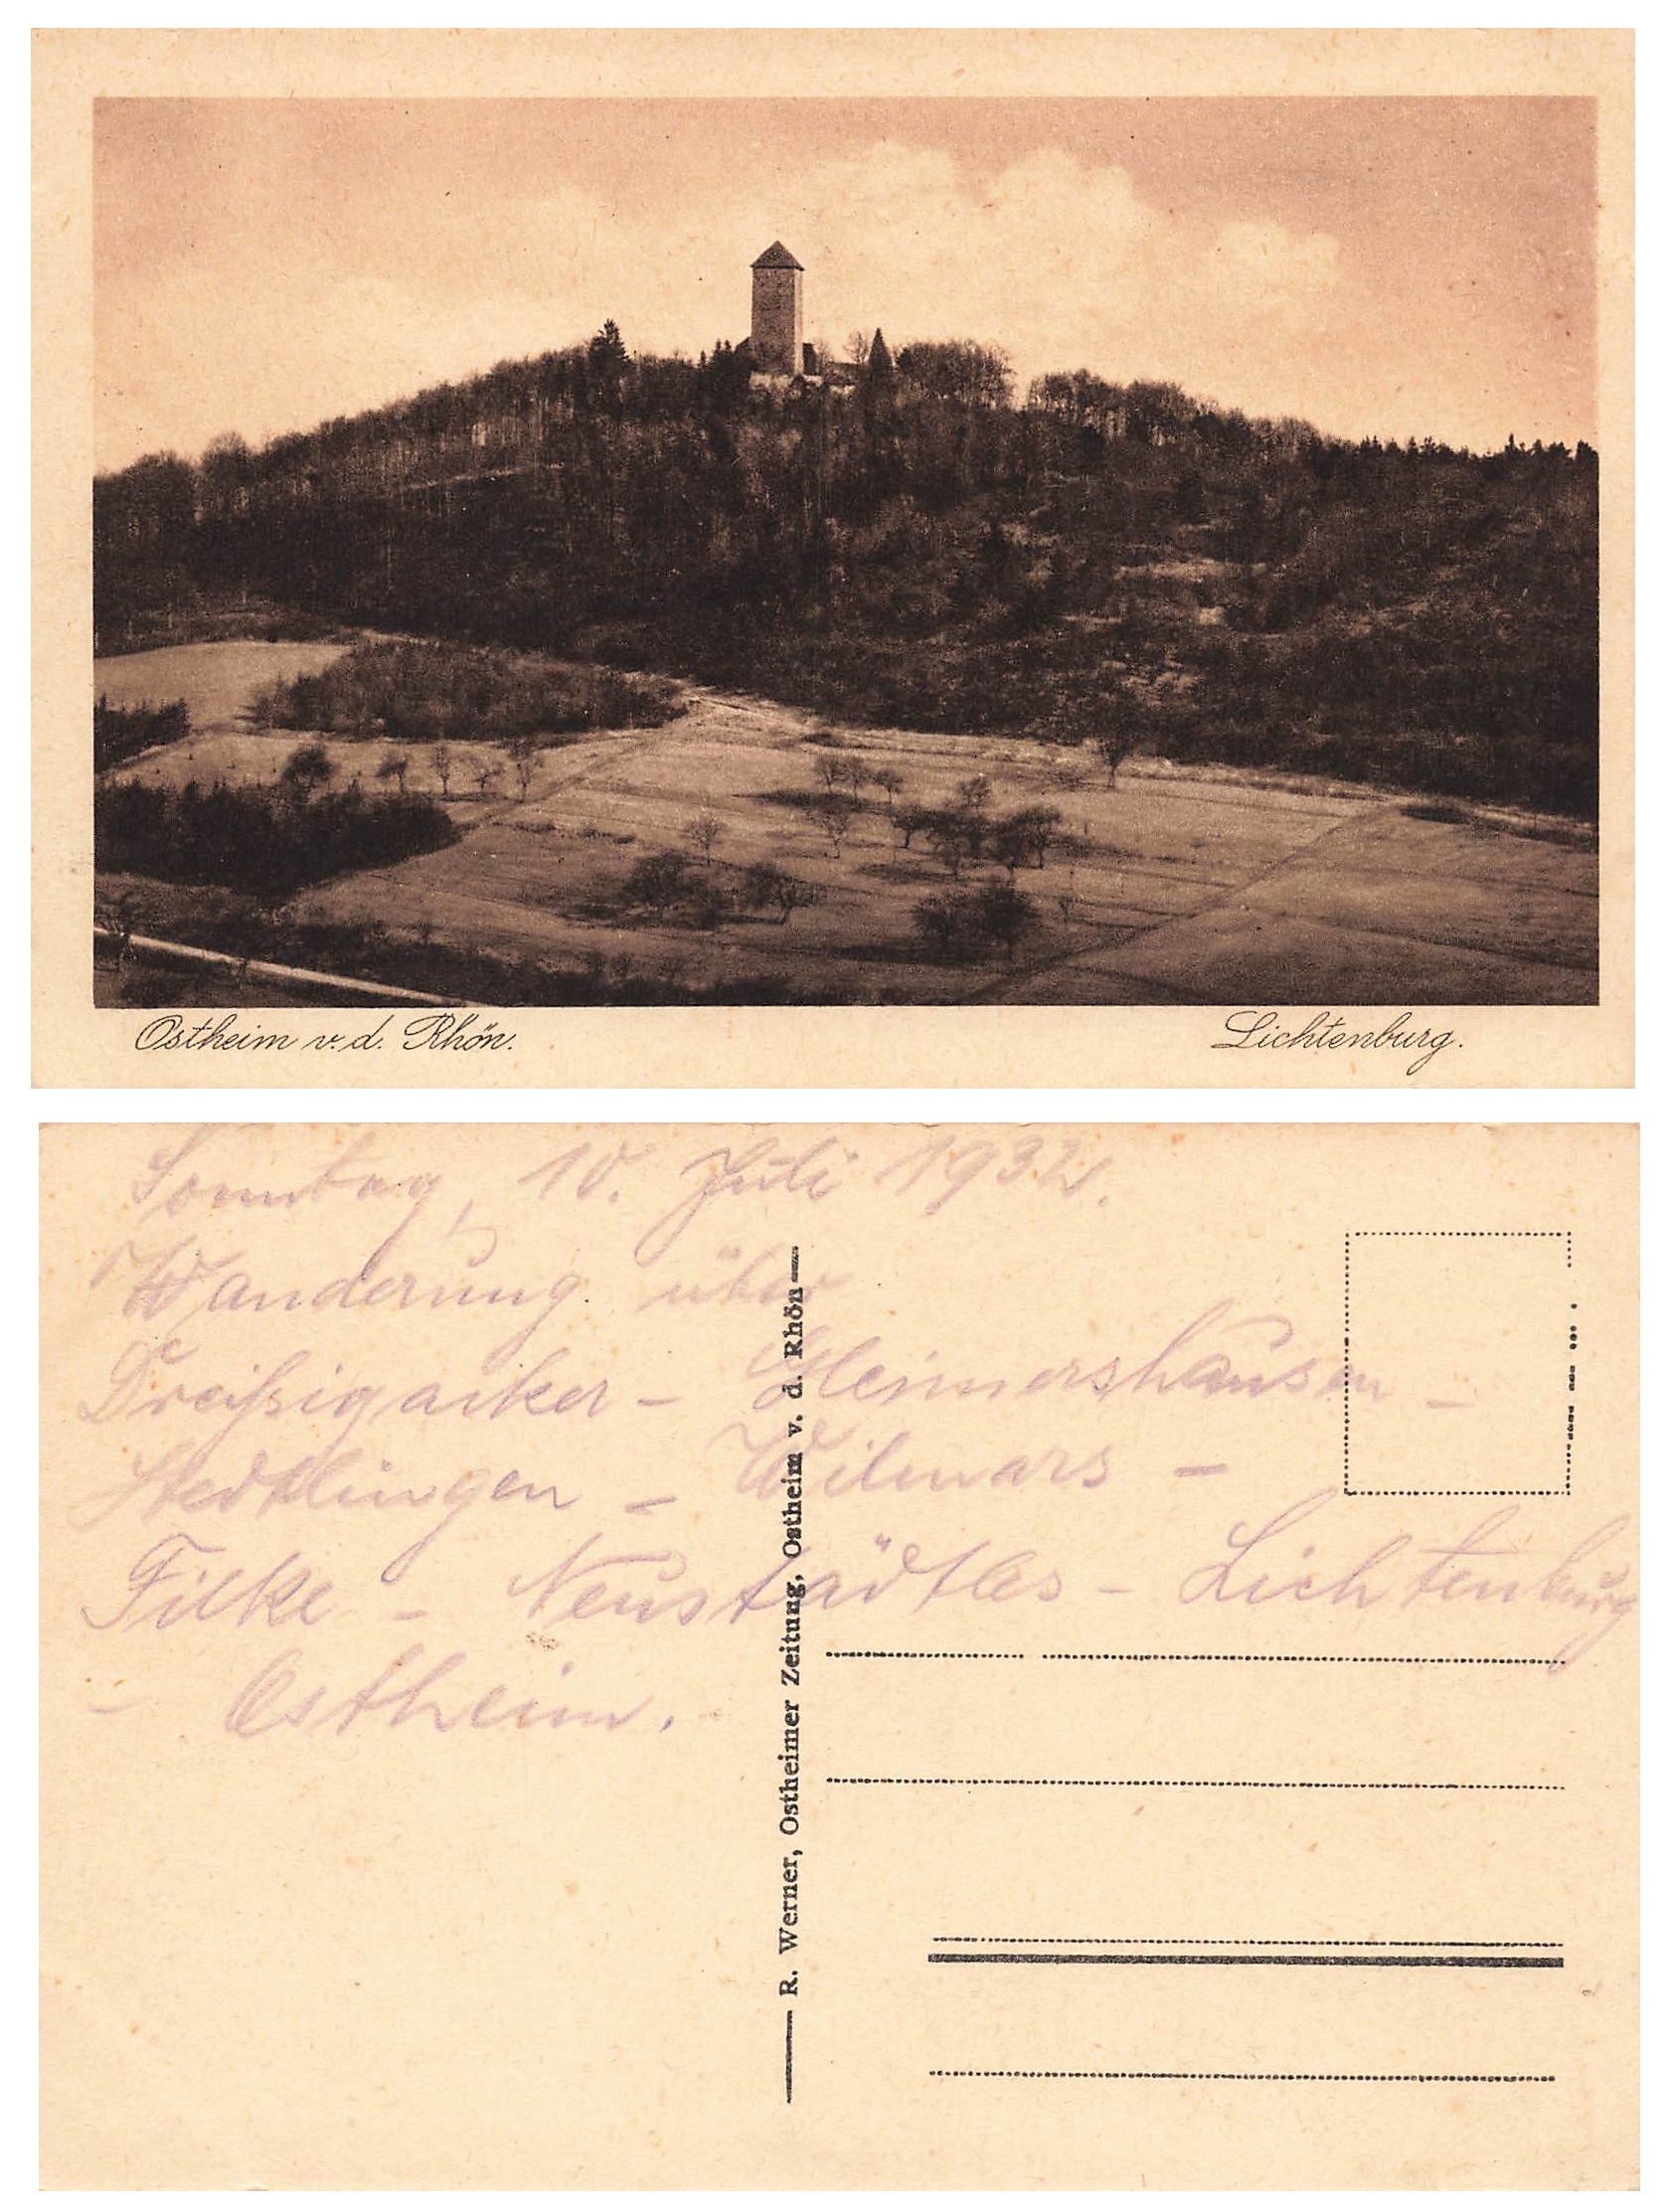 Ostheim v. d. Rhön.
Lichtenburg.
Sonntag, 10. Juli 1932.
Wanderung über
Dreißigacker - Gleimershausen -
Stedtlingen - Wilmars -
Filke - Neustädtles - Lichtenburg
- Ostheim.
R. Werner, Ostheimer Zeitung, Ostheim v. d. Rhön